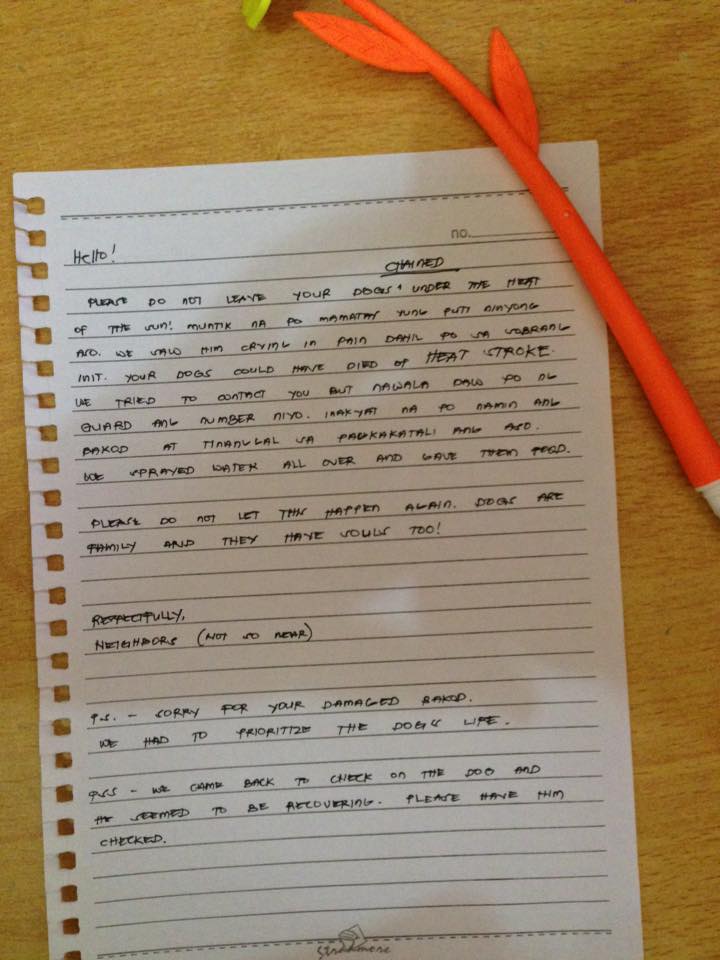 no.
Hello!
CHAINED
PLEASE DO NOT LEAVE YOUR DOGS ^ UNDER THE HEAT
OF THE SUN! MUNTIK NA PO MAMATAY YUNG PUTI NINYONG
ASO. WE SAW HIM CRYING IN PAIN DAHIL PO SA SOBRANG
INIT. YOUR DOGS COULD HAVE DIED OF HEAT STROKE.
WE TRIED TO CONTACT YOU BUT NAWALA DAW PO NG
GUARD ANG NUMBER NIYO. INAKYAT NA PO NAMIN ANG
BAKOD AT TINANGGAL SA PAGKAKATALI ANG ASO.
WE SPRAYED WATER ALL OVER AND GAVE THEM FOOD.
PLEASE DO NOT LET THIS HAPPEN AGAIN. DOGS ARE
FAMILY AND THEY HAVE SOULS TOO!
RESPECTFULLY,
NEIGHBORS (NOT SO NEAR)
P.S. - SORRY FOR YOUR DAMAGED BAKOD.
WE HAD TO PRIORITIZE THE DOG'S LIFE.
PSS - WE CAME BACK TO CHECK ON THE DOG AND
HE SEEMED TO BE RECOVERING. PLEASE HAVE HIM
CHECKED.
Strathmore